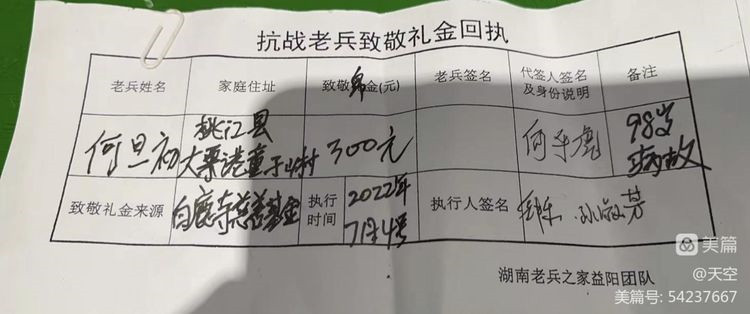 抗战老兵致敬礼金回执
老兵姓名 家庭住址 致敬帛金(元) 老兵签名 代签人签名及身份说明 备注
何旦初 桃江县大栗港童子山村 300元 98岁病故
致敬礼金来源 白鹿寺慈善基金 执行时间 2022年7月4号 执行人签名
湖南老兵之家益阳团队
美篇
@天空
美篇号: 54237667